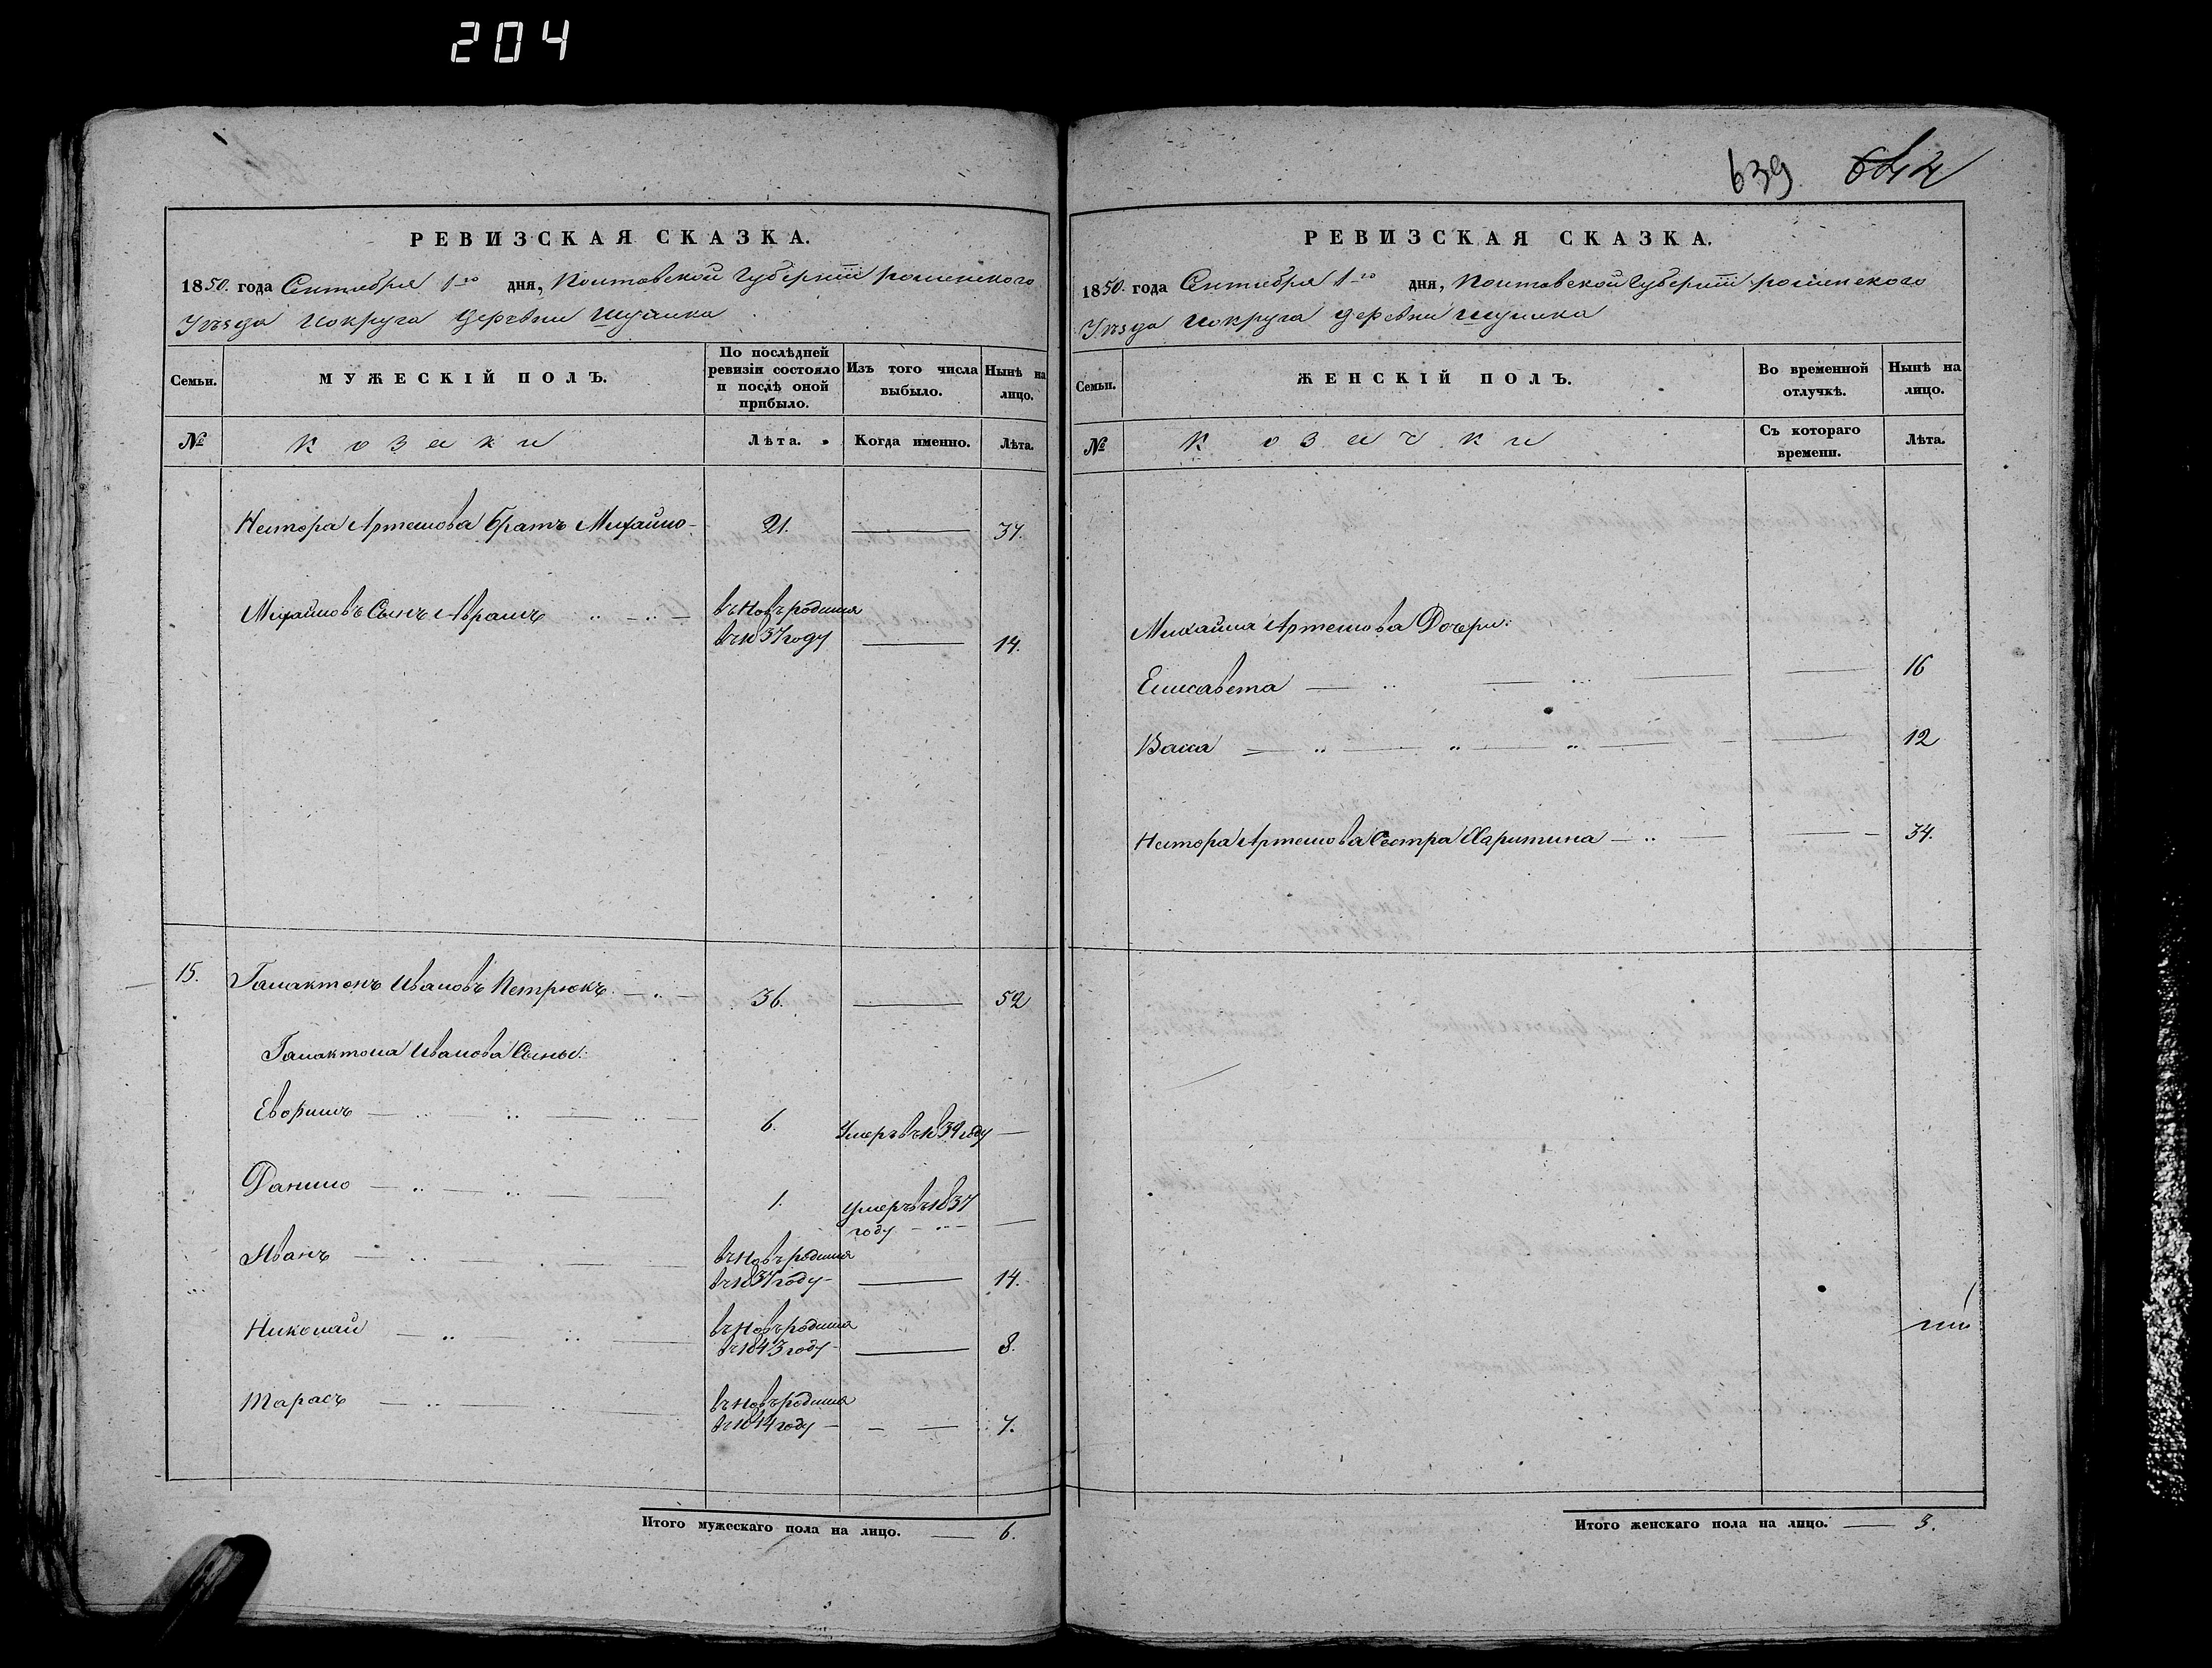 204
639 642
РЕВИЗСКАЯ СКАЗКА.
1850. года Сентября 1го дня, Полтавской Губерніи роменского
Уѣзда и округа деревни
Семьи.
МУЖЕСКІЙ ПОЛЪ.
По послѣдней ревизіи состояло и послѣ оной прибыло.
Изъ того числа выбыло.
Нынѣ на лицо.
№
козаки
Лѣта.
Когда именно.
Лѣта.
Нестора Артемова братъ Михайло 21. 37.
Михайловъ Сынъ Аврамъ въ Новъ родился
въ 1837 году 14.
15. Галактонъ Ивановъ Петрюкъ 36. 52
Галактона Иванова Сыны:
6. Умеръ въ 1839 году
Данило 1. умеръ въ 1837
году
Иванъ въ Новъ родился
въ 1837 году 14.
Николай въ Новъ родился
въ 1843 году 8.
Тарасъ въ Новъ родился
въ 1844 году 7.
Итого мужескаго пола на лицо. 6.
РЕВИЗСКАЯ СКАЗКА.
1850. года Сентября 1го дня, Полтавской Губерніи роменского
Уѣзда и округа деревни
Семьи.
ЖЕНСКІЙ ПОЛЪ.
Во временной отлучкѣ.
Нынѣ на лицо.
№
козачки
Съ котораго времени.
Лѣта.
Михайла Артемова Дочери:
Елисавета 16
Васса 12
Нестора Артемова Сестра Харитина 34.
Итого женскаго пола на лицо. 3.